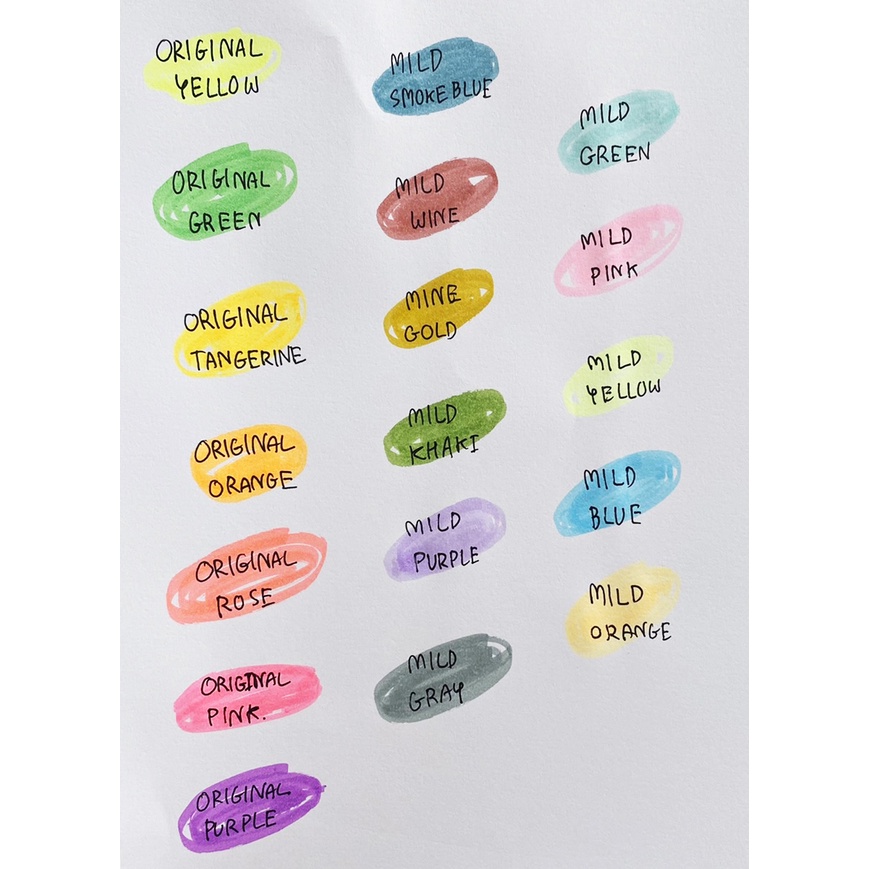 ORIGINAL
YELLOW
ORIGINAL
GREEN
ORIGINAL
TANGERINE
ORIGINAL
ORANGE
ORIGINAL
ROSE
ORIGINAL
PINK.
ORIGINAL
PURPLE
MILD
SMOKE BLUE
MILD
WINE
MINE
GOLD
MILD
KHAKI
MILD
PURPLE
MILD
GRAY
MILD
GREEN
MILD
PINK
MILD
YELLOW
MILD
BLUE
MILD
ORANGE